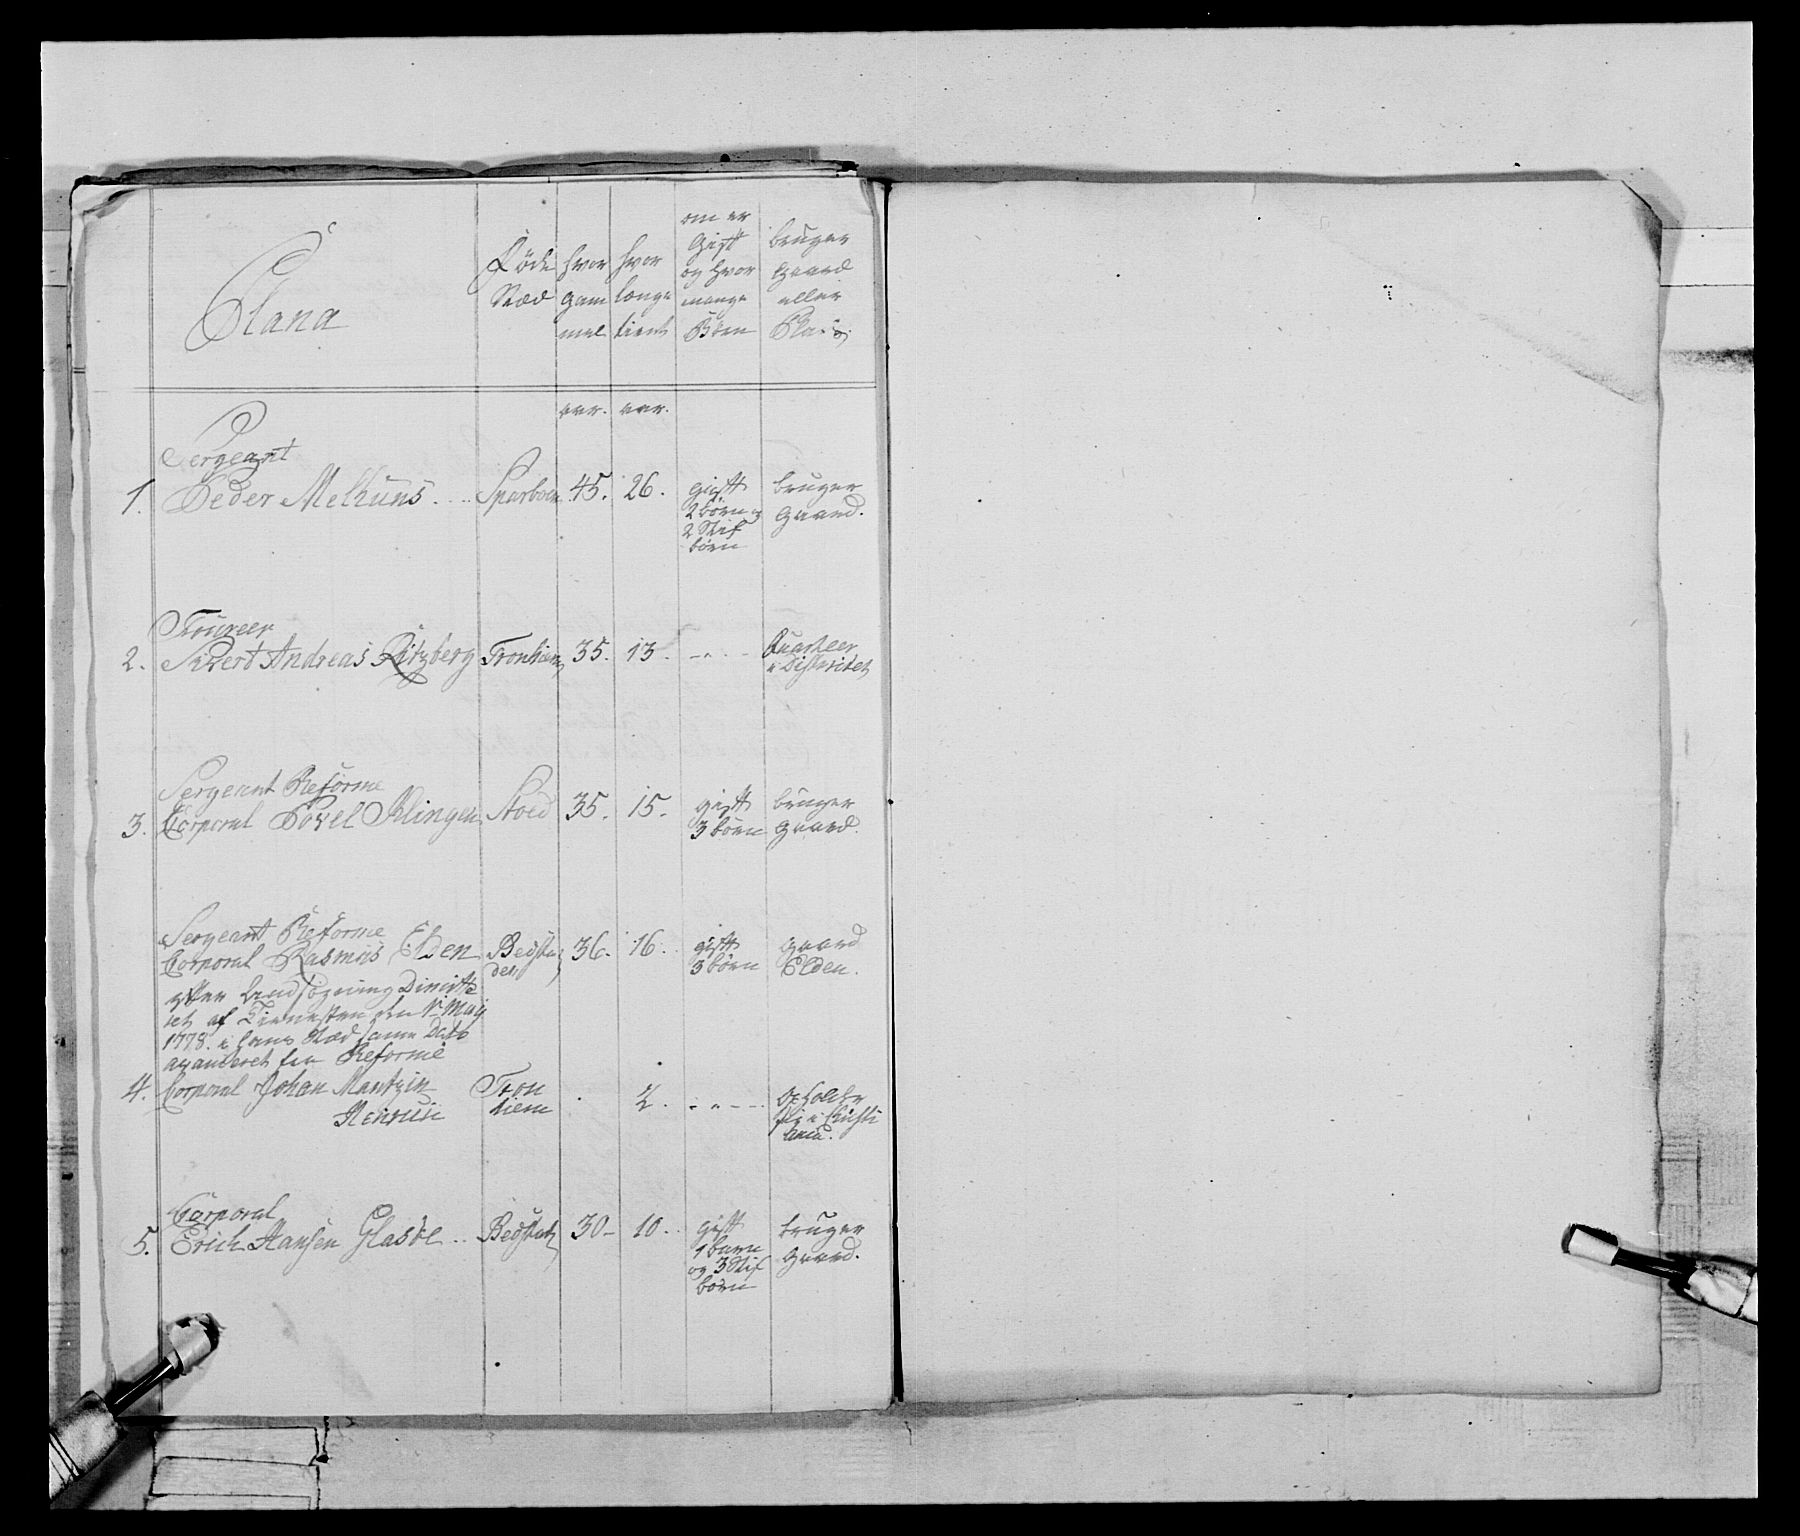 Etana
Føde Stæd
hvor gam mel
hvor længe tient
om er Gift og hvor mange Børn
bruger gaard eller Plads
aar. aar.
Sergeant
1. Peder Melhuus. Sparboen 45. 26. gift 2 børn og 2 Stif børn bruger gaard.
Foureer
2. Sivert Andreas Ritzberg Tronhiem 35. 13. Quarteer i Districtet
Sergeant Reforme
3. Corporal Povel Klingen Stoed 35. 15. gift 3 børn bruger gaard.
Sergeant Reforme
Corporal Rasmus Elden Bedstaden 36. 16. gift 3 børn gaard Elden.
efter Ansøgning Dimitte
ret af Tienesten den 1 Maij
1778. i hans Stæd samme Dato
avanceret fra Reforme
4. Corporal Johan Mantzin Tron hiem 2. opholder sig i Christi ania.
Corporal
5. Erich Hansen Glasøe Bedstad 30 10. gift 1 barn og 3 Stif børn bruger gaard.